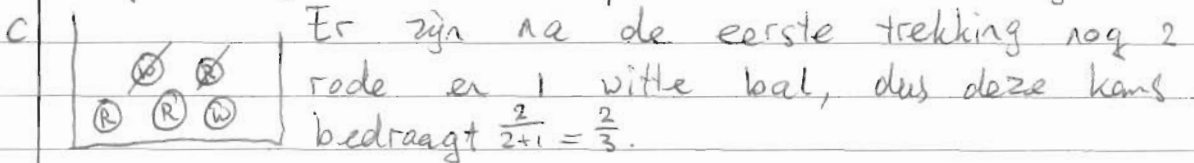 C Er zijn na de eerste trekking nog 2
W R rode en 1 witte bal, dus deze kans
R R W bedraagt 2/(2+1) = 2/3.